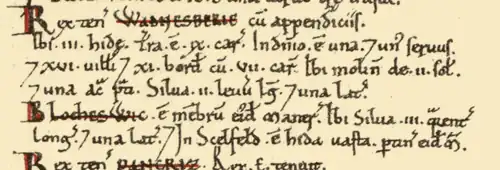 Rex ten' WADNESBERIE cū appendiciis.
Ibi .iii. hidę. Tra .ē. ix. car'. In dñio .ē una. 7 un' seruus.
7 xvi. uilli 7 xi. bord' cū .vii. car'. Ibi molin' de .ii. sol'.
7 una ac' p̃ti. Silua .ii. leuu' lg̃. 7 una lat'.
Blocheswic .ē mēbrū ei'd maner'. Ibi Silua .iii. quent'
long'. 7 una lat'. 7 In Scelfeld .ē hida uasta. ptin' ei'd m̃.
Rex ten'